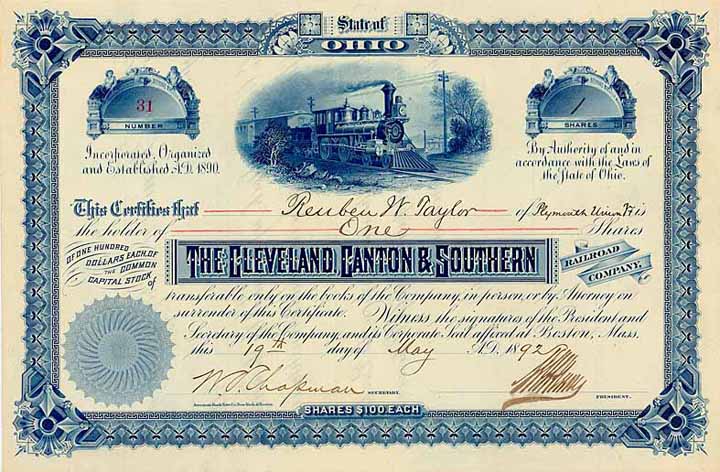 State of
OHIO
31
NUMBER
1
SHARES
Incorporated, Organized
and Established A.D. 1890.
By Authority of and in
accordance with the Laws of
the State of Ohio.
This Certifies that Reuben W. Taylor of Plymouth Union Vt is
the holder of One Shares
OF ONE HUNDRED
DOLLARS EACH, OF
THE COMMON
CAPITAL STOCK of
THE CLEVELAND, CANTON & SOUTHERN
RAILROAD
COMPANY,
transferable only on the books of the Company, in person, or by Attorney on
surrender of this Certificate. Witness the signatures of the President and
Secretary of the Company, and its Corporate Seal affixed at Boston, Mass.
this 19th day of May A.D. 1892
W. O. Chapman SECRETARY.
PRESIDENT.
SHARES $100 EACH